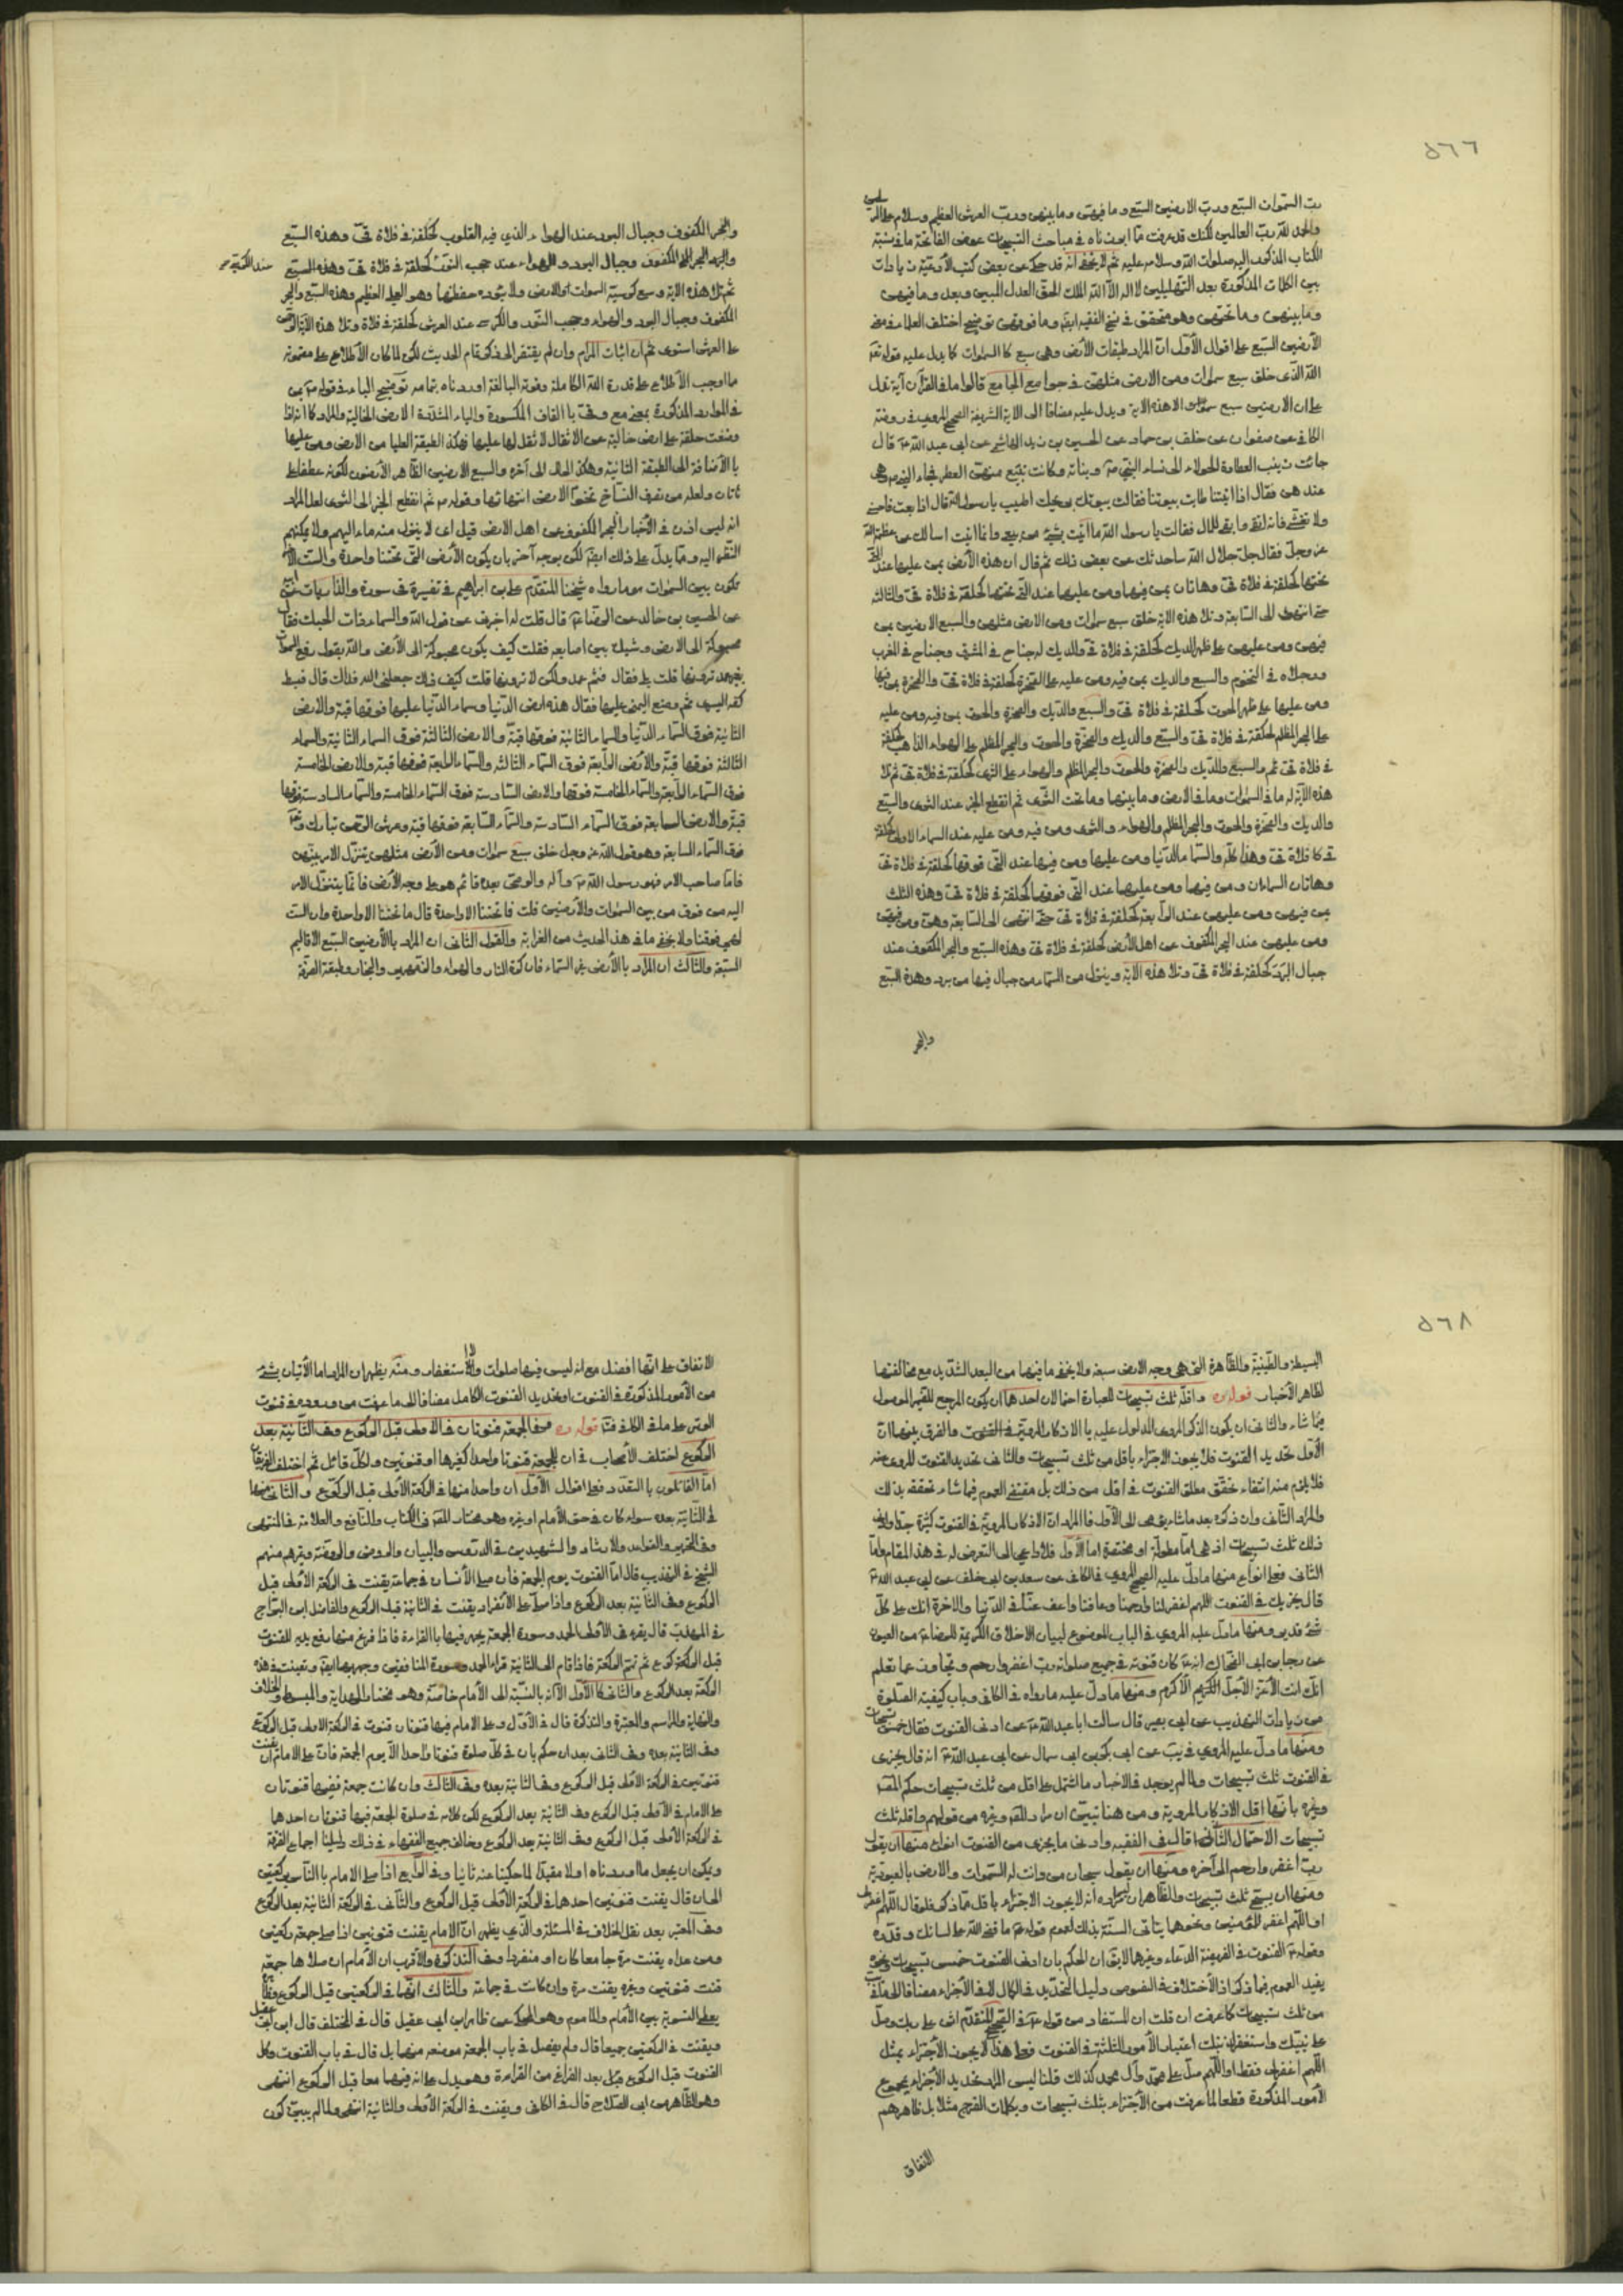 ٥٦٦
رب السموات السبع ورب الارضين السبع وما فيهن وما بينهن ورب العرش العظيم وسلام على المرسلين
والحمد لله رب العالمين لكنك قد عرفت مما اوردناه في مباحث التسبيحات عوض الفاتحة ما في نسبة
الكتاب المذكور اليه صلوات الله وسلامه عليه ثم لا يخفى انه قد حكى عن بعض كتب الأدعية زيادات
بين الكلمات المذكورة بعد التهليلين لا اله الا الله الملك الحق العدل المبين وبعد وما فيهن
وما بينهن وما تحتهن وهو متحقق في نسخ الفقيه ايضا وما فوقهن توضيح اختلف العلماء في معنى
الأرضين السبع على اقوال الأول ان المراد طبقات الأرض وهي سبع كالسموات كما يدل عليه قوله تعالى
الله الذي خلق سبع سموات ومن الارض مثلهن في جوامع الجامع قالوا ما في القرآن آية تدل
على ان الارضين سبع سموات الا هذه الاية ويدل عليه مضافا الى الاية الشريفة الصحيح المروي في روضة
الكافي عن صفوان عن خلف بن حماد عن الحسين بن زيد الهاشمي عن ابى عبد الله ع قال
جائت زينب العطارة الحولاء الى نساء النبي ص وبناته وكانت تبيع منهن العطر فجاء النبي ص وهى
عندهن فقال اذا اتيتنا طابت بيوتنا فقالت بيوتك بريحك اطيب يا رسول الله قال اذا بعت فاحسنى
ولا تغشى فانه اتقى وابقى للمال فقالت يا رسول الله ما اتيت بشيء من بيعى وانما اتيت اسالك عن عظمة الله
عز وجل فقال جل جلال الله ساحدثك عن بعض ذلك ثم قال ان هذه الأرض بمن عليها عند التى
تحتها كحلقة في فلاة قى وهاتان بمن فيهما ومن عليهما عند التى تحتها كحلقة في فلاة قى والثالثة
حتى انتهى الى السابعة وتلا هذه الاية خلق سبع سموات ومن الارض مثلهن والسبع الارضين بمن
فيهن ومن عليهن على ظهر الديك كحلقة في فلاة قى والديك له جناح في المشرق وجناح في المغرب
ورجلاه في التخوم والسبع والديك بمن فيه ومن عليه على الصخرة كحلقة في فلاة قى والصخرة بمن فيها
ومن عليها على ظهر الحوت كحلقة في فلاة قى والسبع والديك والصخرة والحوت بمن فيه ومن عليه
على البحر المظلم كحلقة في فلاة قى والسبع والديك والصخرة والحوت والبحر المظلم على الهواء الذاهب كحلقة
في فلاة قى ثم والسبع والديك والصخرة والحوت والبحر المظلم والهواء على الثرى كحلقة في فلاة قى ثم تلا
هذه الآية له ما في السموات وما في الارض وما بينهما وما تحت الثرى ثم انقطع الخبر عند الثرى والسبع
والديك والصخرة والحوت والبحر المظلم والهواء والثرى ومن فيه ومن عليه عند السماء الاولى كحلقة
في فلاة قى وهذا كله والسماء الدنيا ومن عليها ومن فيها عند التى فوقها كحلقة في فلاة قى
وهاتان السماءان ومن فيهما ومن عليهما عند التى فوقهما كحلقة في فلاة قى وهذه الثلث
بمن فيهن ومن عليهن عند الرابعة كحلقة في فلاة قى حتى انتهى الى السابعة وهن ومن فيهن
ومن عليهن عند البحر المكفوف عن اهل الأرض كحلقة في فلاة قى وهذه السبع والبحر المكفوف عند
جبال البرد كحلقة في فلاة قى وتلا هذه الاية وينزل من السماء من جبال فيها من برد وهذه السبع
والبحر
والبحر المكفوف وجبال البرد عند الهواء الذي فيه القلوب كحلقة في فلاة قى وهذه السبع
والبحر المكفوف وجبال البرد والهواء عند حجب النور كحلقة في فلاة قى وهذه السبع
ثم تلا هذه الاية وسع كرسيه السموات والارض ولا يؤده حفظهما وهو العلى العظيم وهذه السبع والبحر
المكفوف وجبال البرد والهواء وحجب النور والكرسى عند العرش كحلقة في فلاة وتلا هذه الآية الرحمن
على العرش استوى ثم ان اثبات المرام وان لم يفتقر الى ذكر تمام الحديث لكن لما كان الأطلاع على مضمونه
مما اوجب الأطلاع على قدرة الله الكاملة وقوته البالغة اوردناه بتمامه توضيح الباء في قوله ص بمن
في الموارد المذكورة بمعنى مع وقى بالقاف المكسورة والياء المشددة الارض الخالية والمراد كما اذا
وضعت حلقة على ارض خالية عن الاثقال لا ثقل لها عليها فهكذا الطبقة العليا من الارض ومن عليها
بالأضافة الى الطبقة الثانية وهكذا الحال الى آخره والسبع الارضين الظاهر الأرضون لكونه عطفا على
هاتان ولعله من تصرف النساخ تخوم الارض انتهائها وقوله ص ثم انقطع الخبر الى الثرى لعل المراد
انه ليس اذن في الأخبار البحر المكفوف عن اهل الارض قيل اى لا ينزل منه ماء اليهم ولا يمكنهم
النظر اليه ومما يدل على ذلك ايضا لكن بوجه آخر بان يكون الأرض التى تحتنا واحدة والست الأخر
تكون بين السموات هو ما رواه شيخنا المتقدم على بن ابراهيم في تفسيره في سورة والذاريات عن ابيه
عن الحسين بن خالد عن الرضا ع قال قلت له اخبرنى عن قول الله والسماء ذات الحبك فقال
محبوكة الى الارض وشبك بين اصابعه فقلت كيف يكون محبوكة الى الأرض والله يقول رفع السموات
بغير عمد ترونها قلت بلى فقال فثم عمد ولكن لا ترونها قلت كيف ذلك جعلنى الله فداك قال فبسط
كفه اليسرى ثم وضع اليمنى عليها فقال هذه ارض الدنيا وسماء الدنيا عليها فوقها قبة والارض
الثانية فوق السماء الدنيا والسماء الثانية فوقها قبة والارض الثالثة فوق السماء الثانية والسماء
الثالثة فوقها قبة والأرض الرابعة فوق السماء الثالثة والسماء الرابعة فوقها قبة والارض الخامسة
فوق السماء الرابعة والسماء الخامسة فوقها والارض السادسة فوق السماء الخامسة والسماء السادسة فوقها
قبة والارض السابعة فوق السماء السادسة والسماء السابعة فوقها قبة وعرش الرحمن تبارك وتعالى
فوق السماء السابعة وهو قول الله عز وجل خلق سبع سموات ومن الأرض مثلهن يتنزل الامر بينهن
فاما صاحب الامر فهو رسول الله ص وآله والوصى بعده قائم هو على وجه الأرض فانما يتنزل الامر
اليه من فوق من بين السموات والأرضين قلت فما تحتنا الا واحدة قال ما تحتنا الا واحدة وان الست
لهى فوقنا ولا يخفى ما في هذا الحديث من الغرابة والقول الثانى ان المراد بالأرضين السبع الاقاليم
السبعة والثالث ان المراد بالأرض غير السماء فان كرة النار والهواء والزمهرير والبخار وطبقة الصرفة
٥٦٨
البسيطة والطينية والظاهرة التى هى وجه الارض سبعة ولا يخفى ما فيهما من البعد الشديد مع مخالفتهما
لظاهر الأخبار قوله ره واقله ثلث تسبيحات للعبارة احتمالان احدهما ان يكون المرجع للضمير الموصول
بما شاء والثانى ان يكون الذكر المروى المدلول عليه بالاذكار المروية في القنوت والفرق بينهما ان
الأول تحديد القنوت فلا يجوز الاجتزاء باقل من ثلث تسبيحات والثانى تحديد القنوت المروى منه
فلا يلزم منه انتفاء تحقق مطلق القنوت في اقل من ذلك بل مقتضى العموم فيما شاء تحققه بذلك
والمراد الثانى وان ذكره بعد ما شاء يومى الى الأول فالمراد ان الاذكار المروية في القنوت كثيرة جدا واقل
ذلك ثلث تسبيحات اذ هى اما مطولة او مختصرة اما الأول فلا داعى الى التعرض له في هذا المقام واما
الثانى فعلى انواع منها ما دل عليه الصحيح المروي في الكافى عن سعد بن ابى خلف عن ابى عبد الله ع
قال يجزيك في القنوت اللهم اغفر لنا وارحمنا وعافنا واعف عنا في الدنيا والاخرة انك على كل
شيء قدير ومنها ما دل عليه المروي في الباب الموضوع لبيان الاخلاق الكريمة للرضا ع من العيون
عن رجاء بن ابى الضحاك انه ع كان قنوته في جميع صلواته رب اغفر وارحم وتجاوز عما تعلم
انك انت الأعز الأجل الأكرم ومنها ما دل عليه ما رواه في الكافى وباب كيفية الصلوة
من زيادات التهذيب عن ابى بصير قال سالت ابا عبد الله ع عن ادنى القنوت فقال خمس تسبيحات
ومنها ما دل عليه المروي في يب عن ابى بكر بن ابى سمال عن ابى عبد الله ع انه قال يجزى
في القنوت ثلث تسبيحات ولما لم يوجد في الاخبار ما اشتمل على اقل من ثلث تسبيحات حكم المصنف
وغيره بانها اقل الاذكار المروية ومن هنا تبين ان مراد المصنف وغيره من قولهم واقله ثلث
تسبيحات الاحتمال الثانى قال في الفقيه وادنى ما يجزى من القنوت انواع منها ان يقول
رب اغفر وارحم الى آخره ومنها ان يقول سبحان من دانت له السموات والارض بالعبودية
ومنها ان يسبح ثلث تسبيحات والظاهر ان ليس مراده انه لا يجوز الاجتزاء باقل مما ذكر فلو قال اللهم اغفر لى
او اللهم اغفر للمؤمنين ونحوها يتأتى السنة بذلك لعموم قوله ع ما قضى الله على لسانك وقدره
وقوله ع القنوت في الفريضة الدعاء وغيرها لا يقال ان الحكم بان ادنى القنوت خمس تسبيحات ونحوه
يقيد العموم فيما ذكر اذ الأختلاف في النصوص دليل التحديد في الكمال لا في الأجزاء مضافا الى ما في
من ثلث تسبيحات كما عرفت ان قلت ان المستفاد من قوله ع في الصحيح المتقدم اثن على ربك وصل
على نبيك واستغفر لذنبك اعتبار الأمور الثلثة في القنوت فعلى هذا لا يجوز الأجتزاء بمثل
اللهم اغفر لى فقط او اللهم صل على محمد وآل محمد كذلك قلنا ليس المراد تحديد الأجزاء بمجموع
الأمور المذكورة قطعا لما عرفت من الأجتزاء بثلث تسبيحات وبكلمات الفرج مثلا بل ظاهرهم
الاتفاق
الاتفاق على انها افضل مع انه ليس فيها صلوات ولا استغفار ومنه يظهر ان المراد اما الأتيان بشيء
من الأمور المذكورة في القنوت او تحديد القنوت الكامل مضافا الى ما عرفت من وروده في قنوت
الوتر على ما في الكافى قوله ره وفي الجمعة قنوتان في الاولى قبل الركوع وفي الثانية بعد
الركوع اختلف الأصحاب في ان للجمعة قنوتا واحدا كغيرها او قنوتين ولكل قائل ثم اختلف الفريقان
اما القائلون بالتعدد فعلى اقوال الأول ان واحدا منها في الركعة الأولى قبل الركوع والثانى منها
في الثانية بعده سواء كان في حق الأمام او غيره وهو مختار المصنف في الكتاب والنافع والعلامة في المنتهى
وفي التحرير والقواعد والارشاد والشهيدين في الدروس والبيان والروض والروضة وغيرهم منهم
الشيخ في التهذيب قال اما القنوت يوم الجمعة فان صلى الأنسان في جماعة يقنت في الركعة الأولى قبل
الركوع وفي الثانية بعد الركوع واذا صلى على الانفراد يقنت في الثانية قبل الركوع والفاضل ابن البراج
في المهذب قال يقرء في الأولى الحمد وسورة الجمعة يجهر فيهما بالقراءة فاذا فرغ منهما رفع يديه للقنوت
قبل الركوع ثم تمم الركعة فاذا قام الى الثانية قراء الحمد وسورة المنافقين وجهر بهما ايضا ويقنت في هذه
الركعة بعد الركوع والثانى كالأول الا انه بالنسبة الى الأمام خاصة وهو مختار الهداية والمبسوط والخلاف
والنهاية والمراسم والمعتبر والتذكرة قال في الأول وعلى الامام فيها قنوتان قنوت في الركعة الاولى قبل الركوع
وفي الثانية بعده وفي الثانى بعد ان حكم بان في كل صلوة قنوتا واحدا الا يوم الجمعة فان على الامام ان يقنت
قنوتين في الركعة الأولى قبل الركوع وفي الثانية بعده وفي الثالث وان كانت جمعة ففيها قنوتان
على الامام في الأولى قبل الركوع وفي الثانية بعد الركوع لكن كلامه في صلوة الجمعة فيها قنوتان احدهما
في الركعة الأولى قبل الركوع وفي الثانية بعد الركوع وخالف جميع الفقهاء في ذلك دليلنا اجماع الفرقة
ويمكن ان يجعل ما اوردناه اولا مقيدا لما حكينا عنه ثانيا وفي الرابع اذا صلى الامام بالناس ركعتين
الى ان قال يقنت قنوتين احدهما في الركعة الأولى قبل الركوع والثانى في الركعة الثانية بعد الركوع
وفي المعتبر بعد نقل الخلاف في المسئلة والذي يظهر ان الامام يقنت قنوتين اذا صلى جمعة ركعتين
ومن عداه يقنت مرة جامعا كان او منفردا وفي التذكرة والأقرب ان الأمام ان صلاها جمعة
قنت قنوتين وغيره يقنت مرة وان كانت في جماعة والثالث انهما في الركعتين قبل الركوع
على التسوية بين الأمام والماموم وهو المحكى عن ظاهر ابن ابى عقيل قال في المختلف قال ابن ابى عقيل
ويقنت في الركعتين جميعا قال ولم يفصل في باب الجمعة موضعه منهما بل قال في باب القنوت وكل
القنوت قبل الركوع بعد الفراغ من القراءة وهو يدل على انه فيهما معا قبل الركوع انتهى
وهو الظاهر من ابى الصلاح قال في الكافى ويقنت في الركعة الأولى والثانية انتهى ولما لم يبين كون